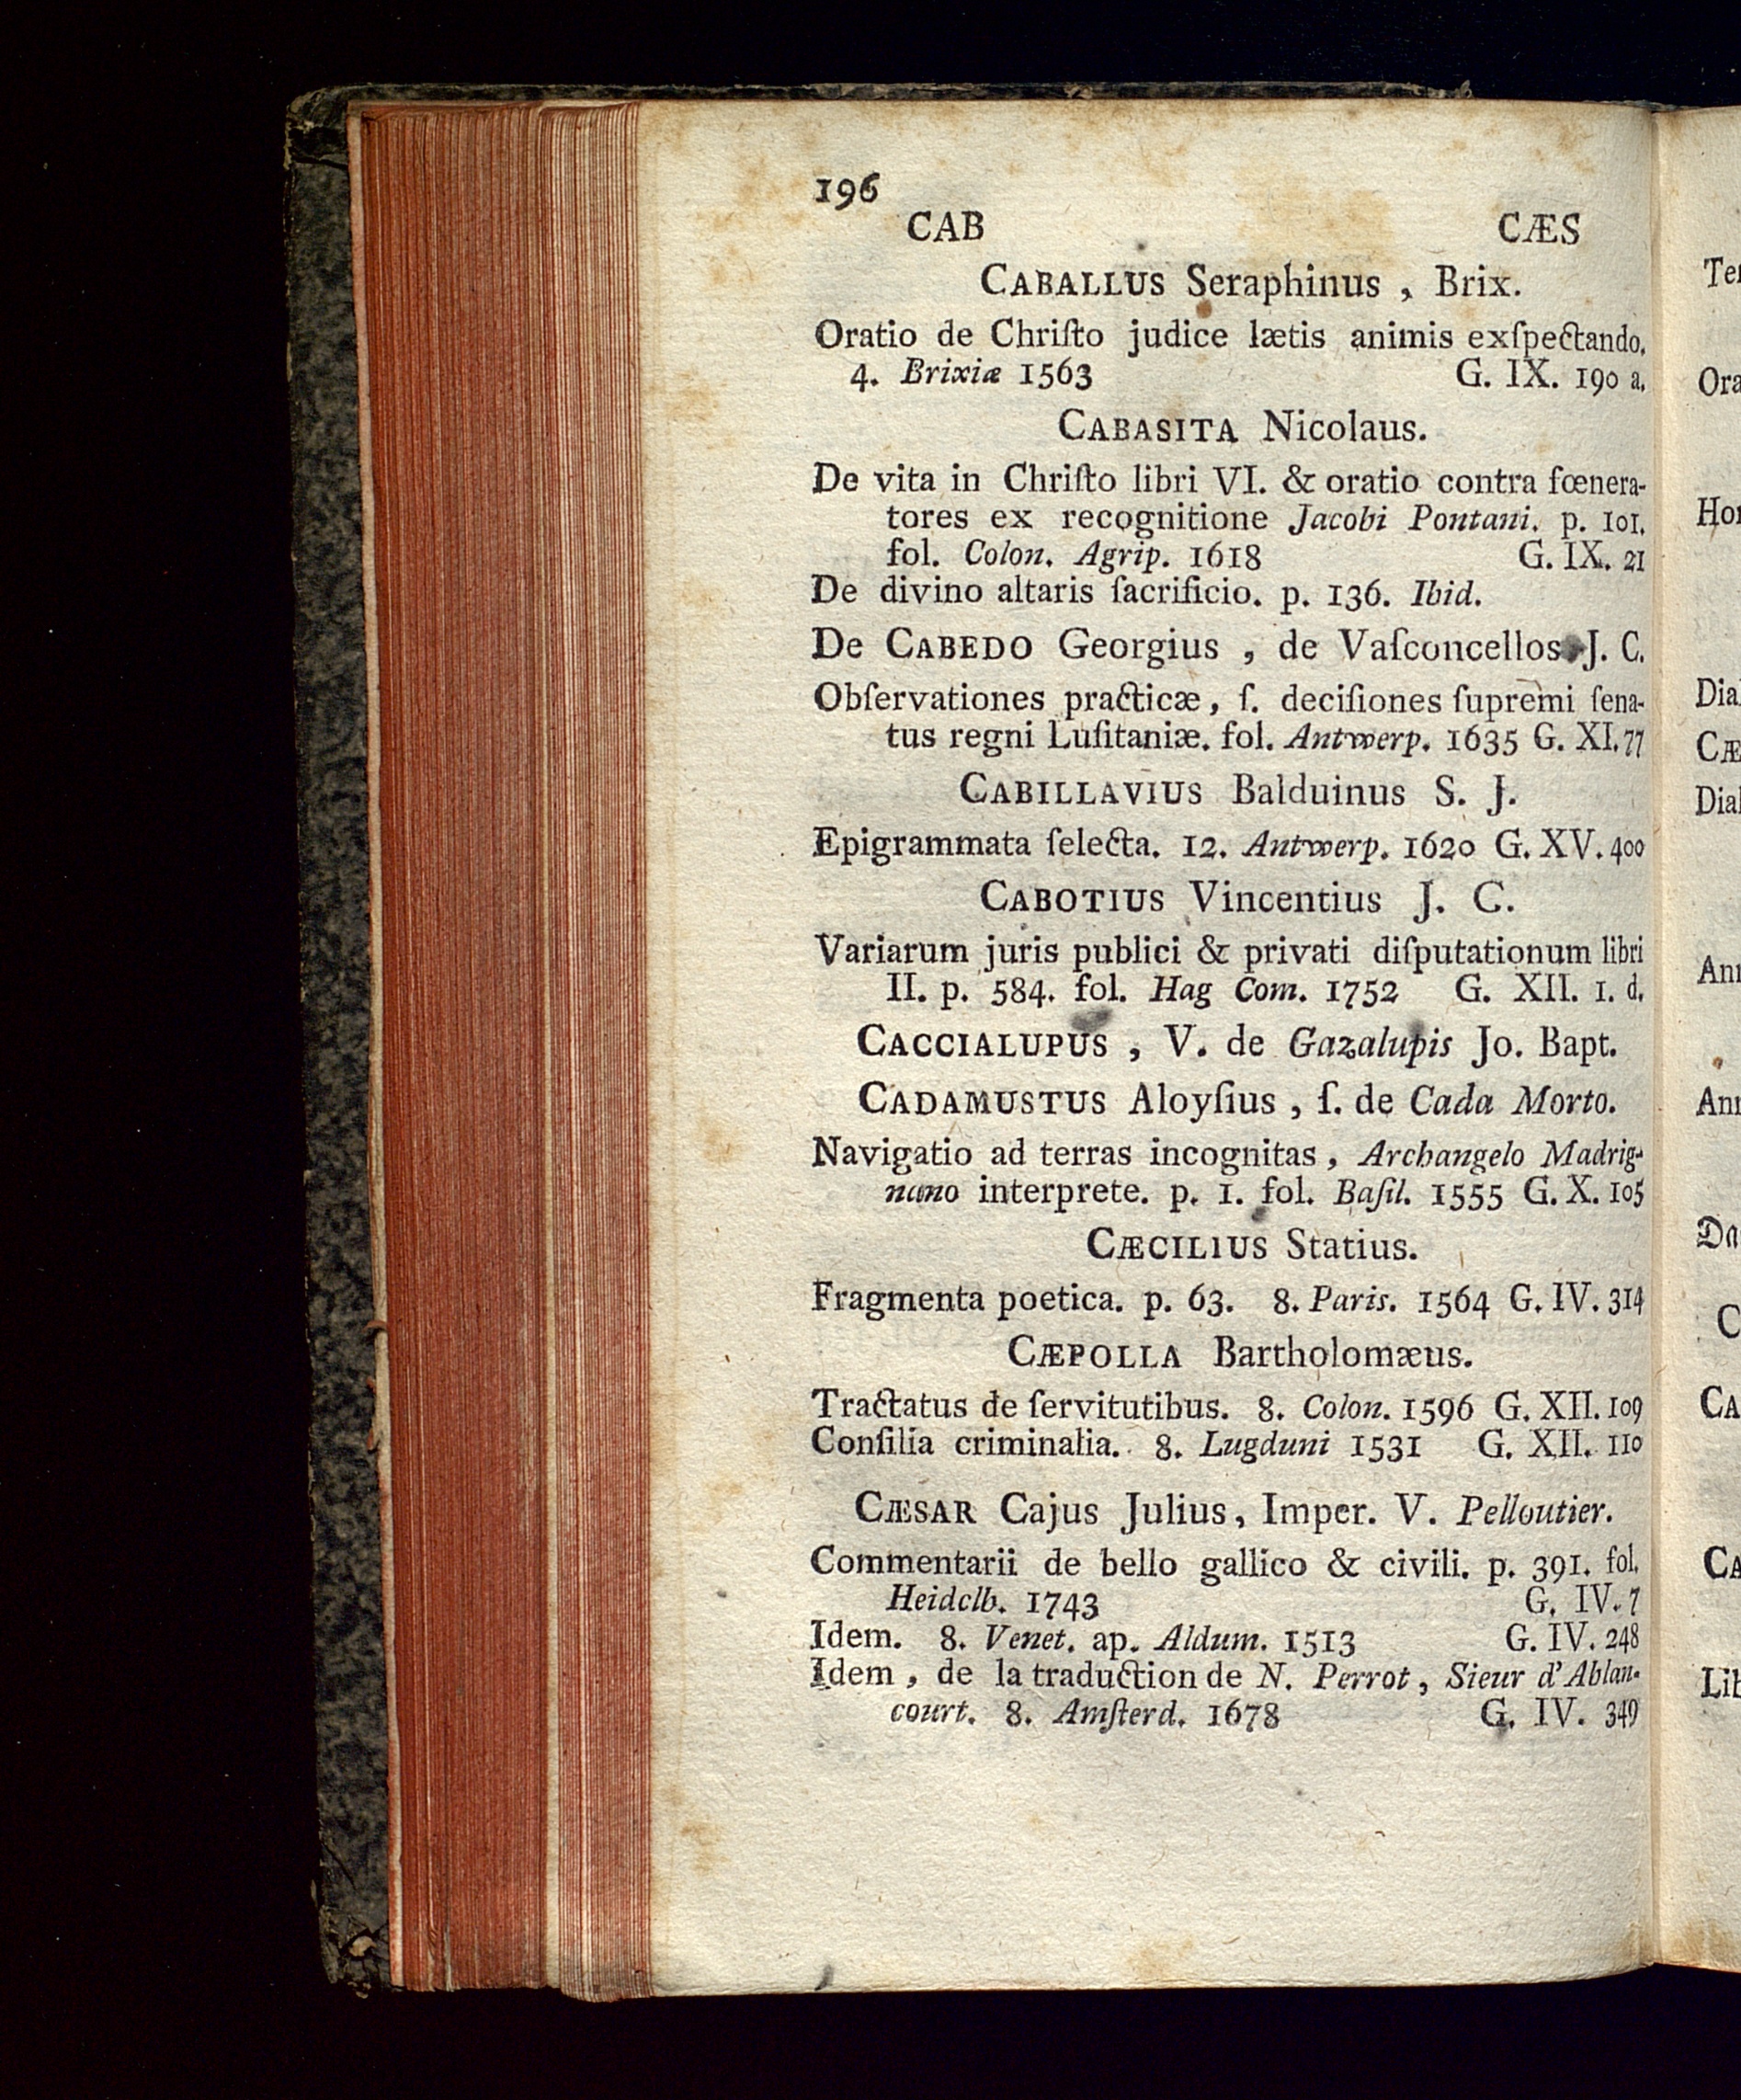 196
CAB CÆS
CABALLUS Seraphinus , Brix.
Oratio de Chriſto judice lætis animis exſpectando.
4. Brixiæ 1563 G. IX. 190 a.
CABASITA Nicolaus.
De vita in Chriſto libri VI. & oratio contra fœnera-
tores ex recognitione Jacobi Pontani. p. 101.
fol. Colon. Agrip. 1618 G. IX. 21
De divino altaris ſacrificio. p. 136. Ibid.
De CABEDO Georgius , de Vaſconcellos J. C.
Obſervationes practicæ, ſ. deciſiones ſupremi ſena-
tus regni Luſitaniæ. fol. Antwerp. 1635 G. XI. 77
CABILLAVIUS Balduinus S. J.
Epigrammata ſelecta. 12. Antwerp. 1620 G. XV. 400
CABOTIUS Vincentius J. C.
Variarum juris publici & privati diſputationum libri
II. p. 584. fol. Hag Com. 1752 G. XII. 1. d.
CACCIALUPUS , V. de Gazalupis Jo. Bapt.
CADAMUSTUS Aloyſius , ſ. de Cada Morto.
Navigatio ad terras incognitas , Archangelo Madrig-
nano interprete. p. 1. fol. Baſil. 1555 G. X. 105
CÆCILIUS Statius.
Fragmenta poetica. p. 63. 8. Paris. 1564 G. IV. 314
CÆPOLLA Bartholomæus.
Tractatus de ſervitutibus. 8. Colon. 1596 G. XII. 109
Conſilia criminalia. 8. Lugduni 1531 G. XII. 110
CÆSAR Cajus Julius, Imper. V. Pelloutier.
Commentarii de bello gallico & civili. p. 391. fol.
Heidelb. 1743 G. IV. 7
Idem. 8. Venet. ap. Aldum. 1513 G. IV. 248
Idem , de la traduction de N. Perrot , Sieur d' Ablan-
court. 8. Amſterd. 1678 G. IV. 349
Ter
Ora
Hor
Dial
CÆ
Dial
Ann
Ann
Da
C
CA
CA
Lib